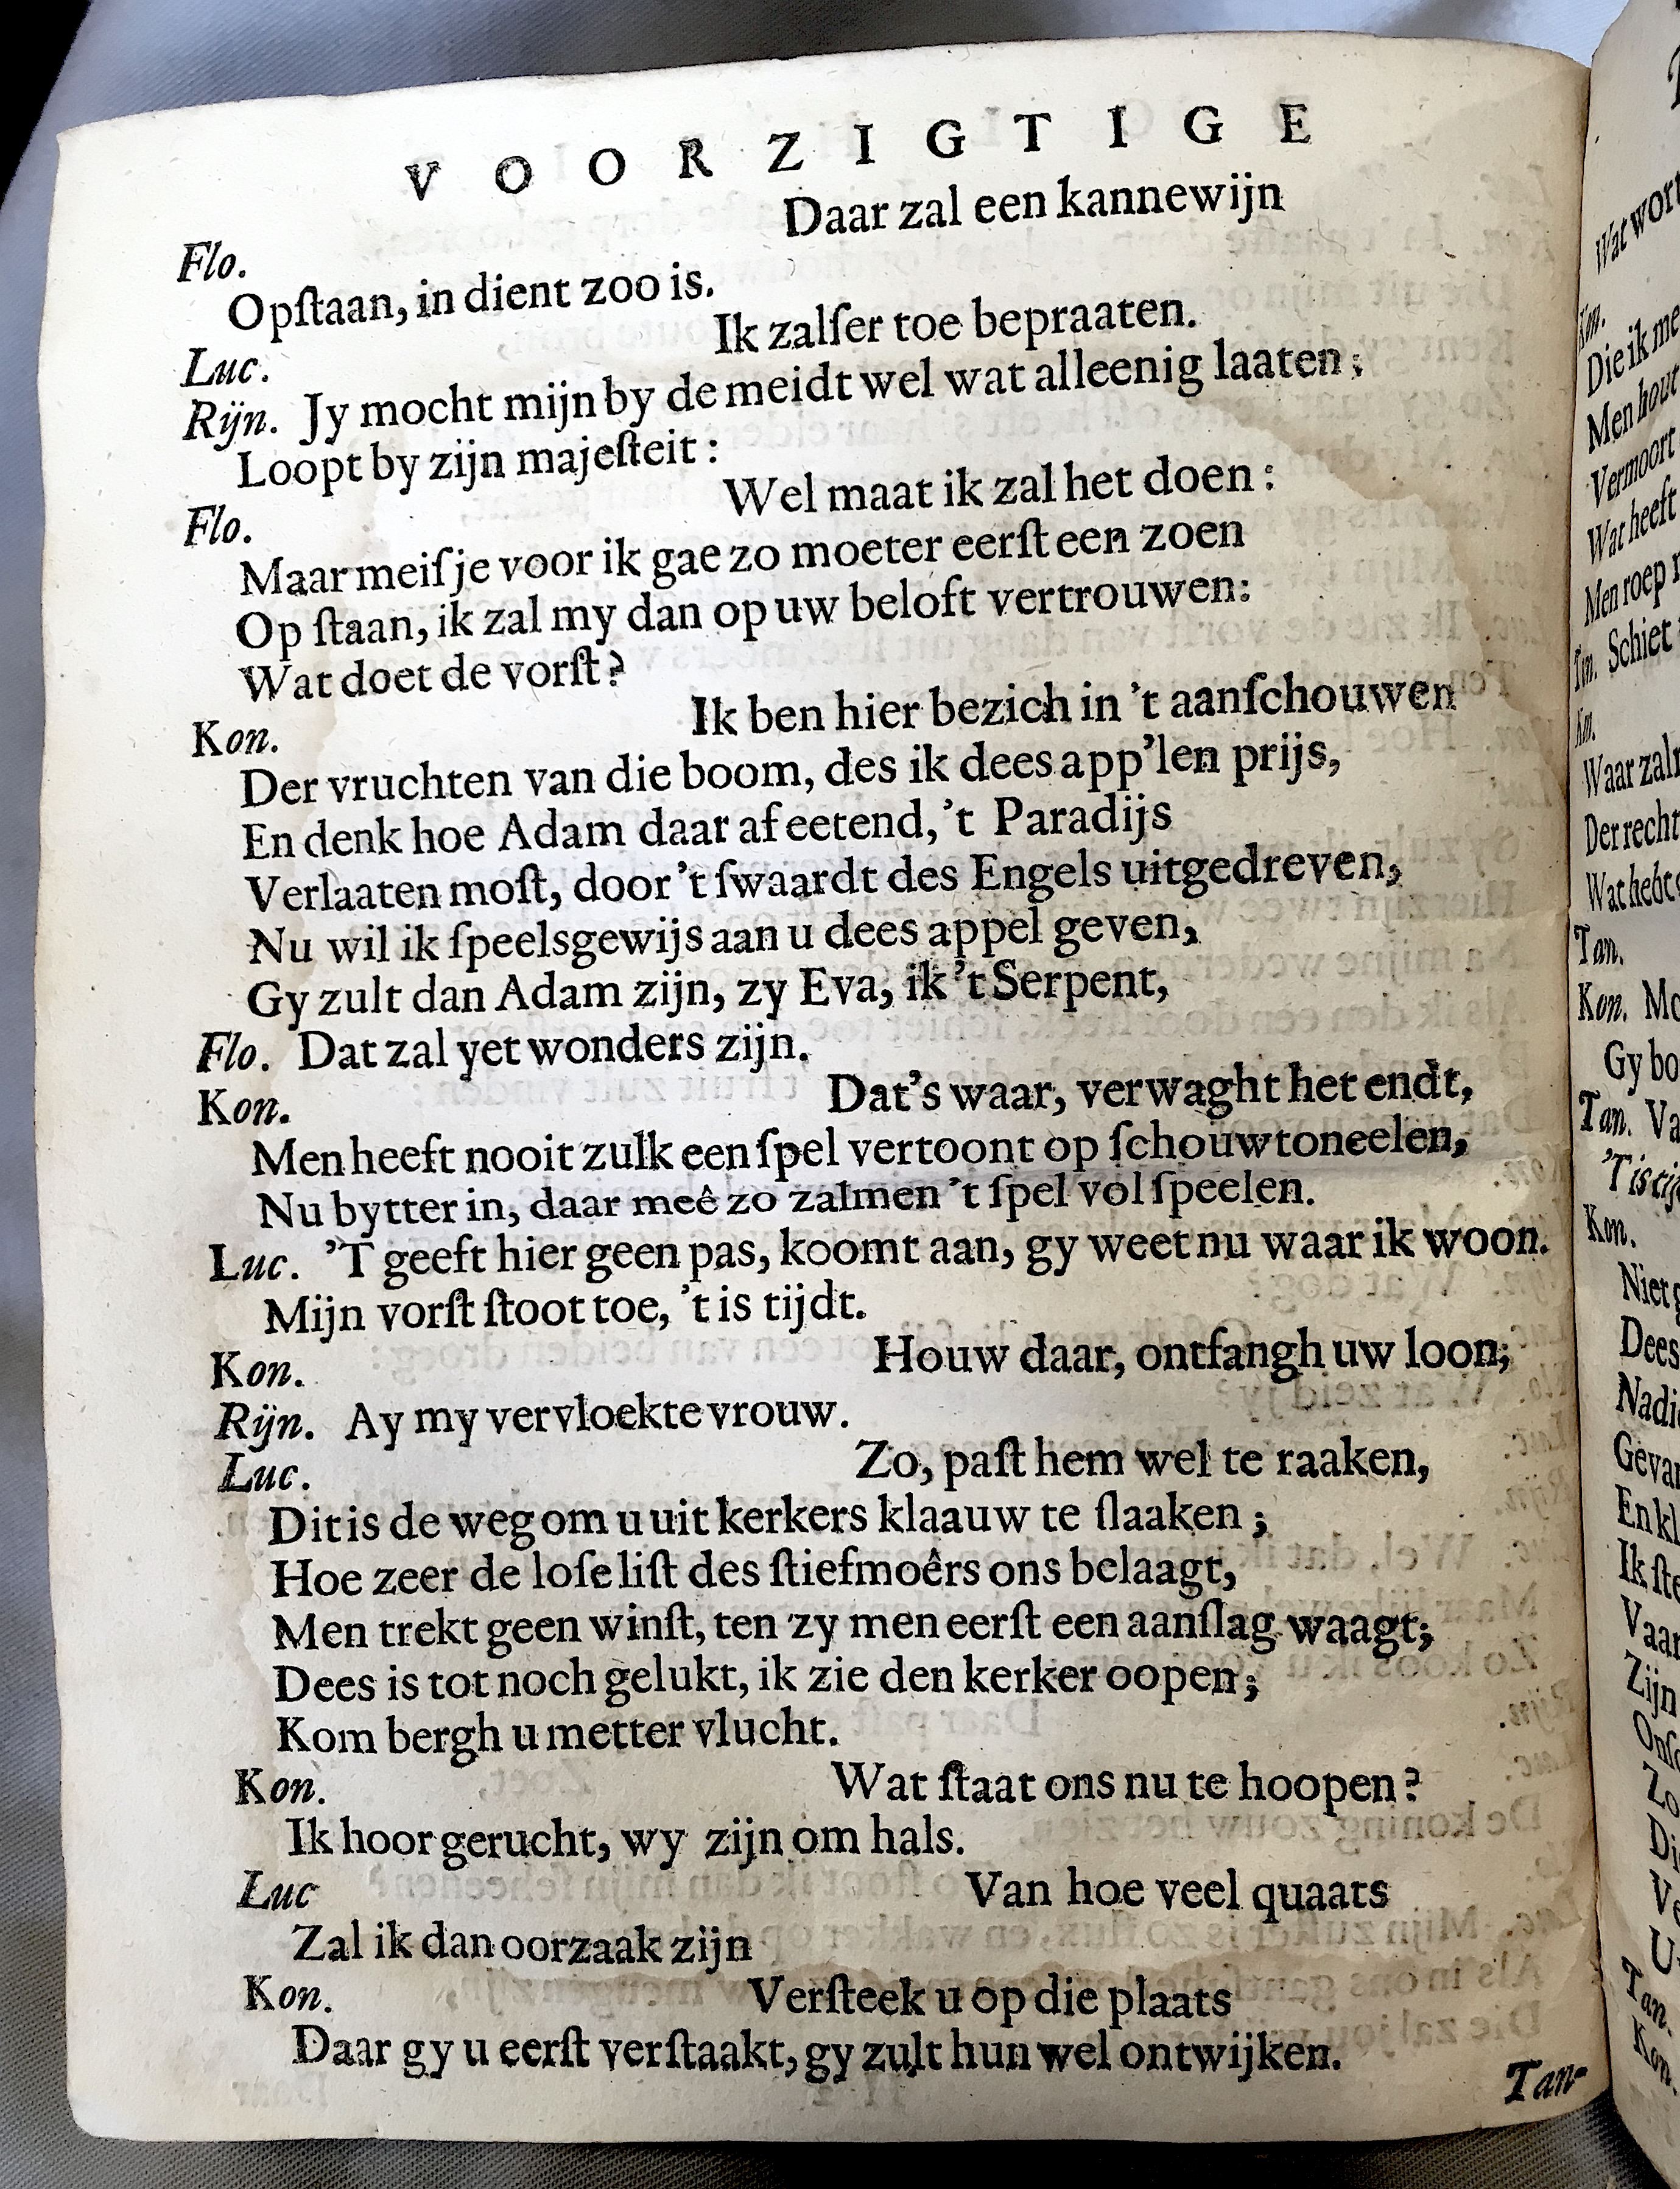 VOORZIGTIGE
Flo. Daar zal een kannewijn
Opſtaan, in dient zoo is.
Luc. Ik zalſer toe bepraaten.
Rijn. Jy mocht mijn by de meidt wel wat alleenig laaten;
Loopt by zijn majeſteit:
Flo. Wel maat ik zal het doen:
Maar meiſje voor ik gae zo moeter eerſt een zoen
Op ſtaan, ik zal my dan op uw beloft vertrouwen:
Wat doet de vorſt?
Kon. Ik ben hier bezich in 't aanſchouwen
Der vruchten van die boom, des ik dees app'len prijs,
En denk hoe Adam daar af eetend, 't Paradijs
Verlaaten moſt, door 't ſwaardt des Engels uitgedreven,
Nu wil ik ſpeelsgewijs aan u dees appel geven,
Gy zult dan Adam zijn, zy Eva, ik 't Serpent,
Flo. Dat zal yet wonders zijn.
Kon. Dat's waar, verwaght het endt,
Men heeft nooit zulk een ſpel vertoont op ſchouwtoneelen,
Nu bytter in, daar meê zo zalmen 't ſpel vol ſpeelen.
Luc. 'T geeft hier geen pas, koomt aan, gy weet nu waar ik woon.
Mijn vorſt ſtoot toe, 't is tijdt.
Kon. Houw daar, ontfangh uw loon;
Rijn. Ay my vervloekte vrouw.
Luc. Zo, paſt hem wel te raaken,
Dit is de weg om u uit kerkers klaauw te ſlaaken;
Hoe zeer de loſe liſt des ſtiefmoêrs ons belaagt,
Men trekt geen winſt, ten zy men eerſt een aanſlag waagt;
Dees is tot noch gelukt, ik zie den kerker oopen;
Kom bergh u metter vlucht.
Kon. Wat ſtaat ons nu te hoopen?
Ik hoor gerucht, wy zijn om hals.
Luc Van hoe veel quaats
Zal ik dan oorzaak zijn
Kon. Verſteek u op die plaats
Daar gy u eerſt verſtaakt, gy zult hun wel ontwijken.
Tan-
Wat wort
Kon.
Die ik me
Men hout
Vermoort
Wat heeft
Men roep
Tan. Schiet
Kon.
Waar zal
Der recht
Wat hebt
Tan.
Kon. Mo
Gy bo
Tan. Va
'T is tij
Kon.
Niet g
Dees
Nadi
Geva
En kl
Ik ſte
Vaar
Zijn
Onſ
Zo
Di
Ve
U
Tan.
Kon.